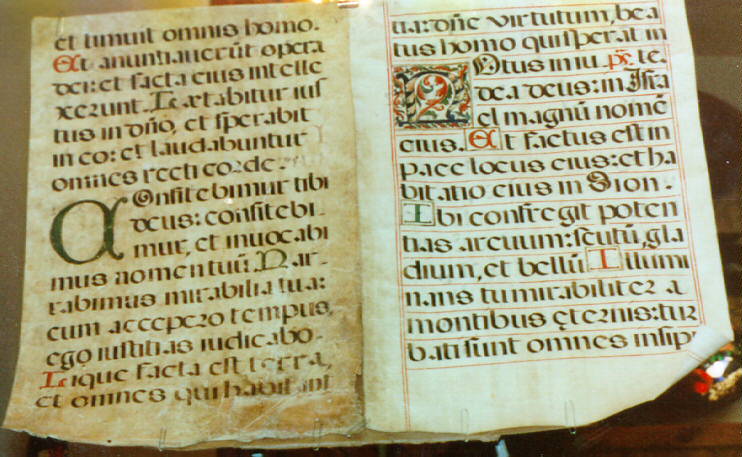 et timuit omnis homo.
Et anuntiauerūt opera
dei: et facta eius intelle
xerunt. Lętabitur ius
tus in dño, et sperabit
in eo: et laudabuntur
omnes recti corde.
Confitebimur tibi
deus: confitebi
mur, et inuocabi
mus nomen tuū. Nar
rabimus mirabilia tua:
cum accepero tempus,
ego iustitias iudicabo.
Liquefacta est terra,
et omnes qui habitant
tia: dñe virtutum, bea
tus homo qui sperat in
Notus in iu te.
dea deus: in Isra
el magnū nomē
eius. Et factus est in
pace locus eius: et ha
bitatio eius in Sion.
Ibi confregit poten
tias arcuum: scutū, gla
dium, et bellū Illumi
nans tu mirabiliter a
montibus ęternis: tur
bati sunt omnes insipi